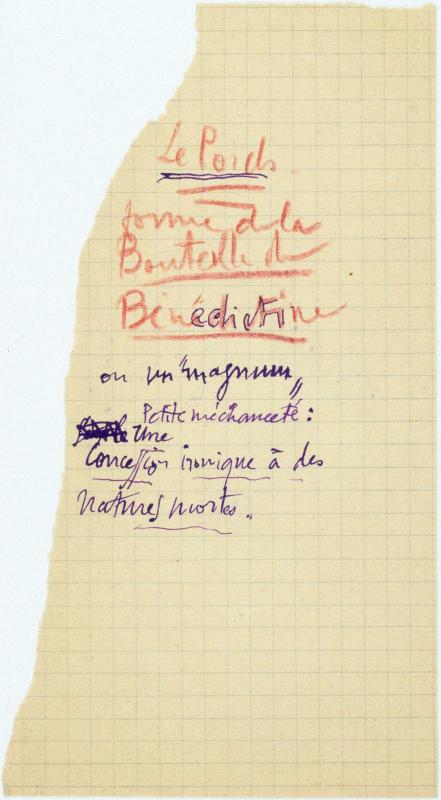 Le Poids
forme de la
Bouteille de
Bénédictine
ou un "magnum"
Petite méchanceté :
Une
Concession ironique à des
natures mortes.